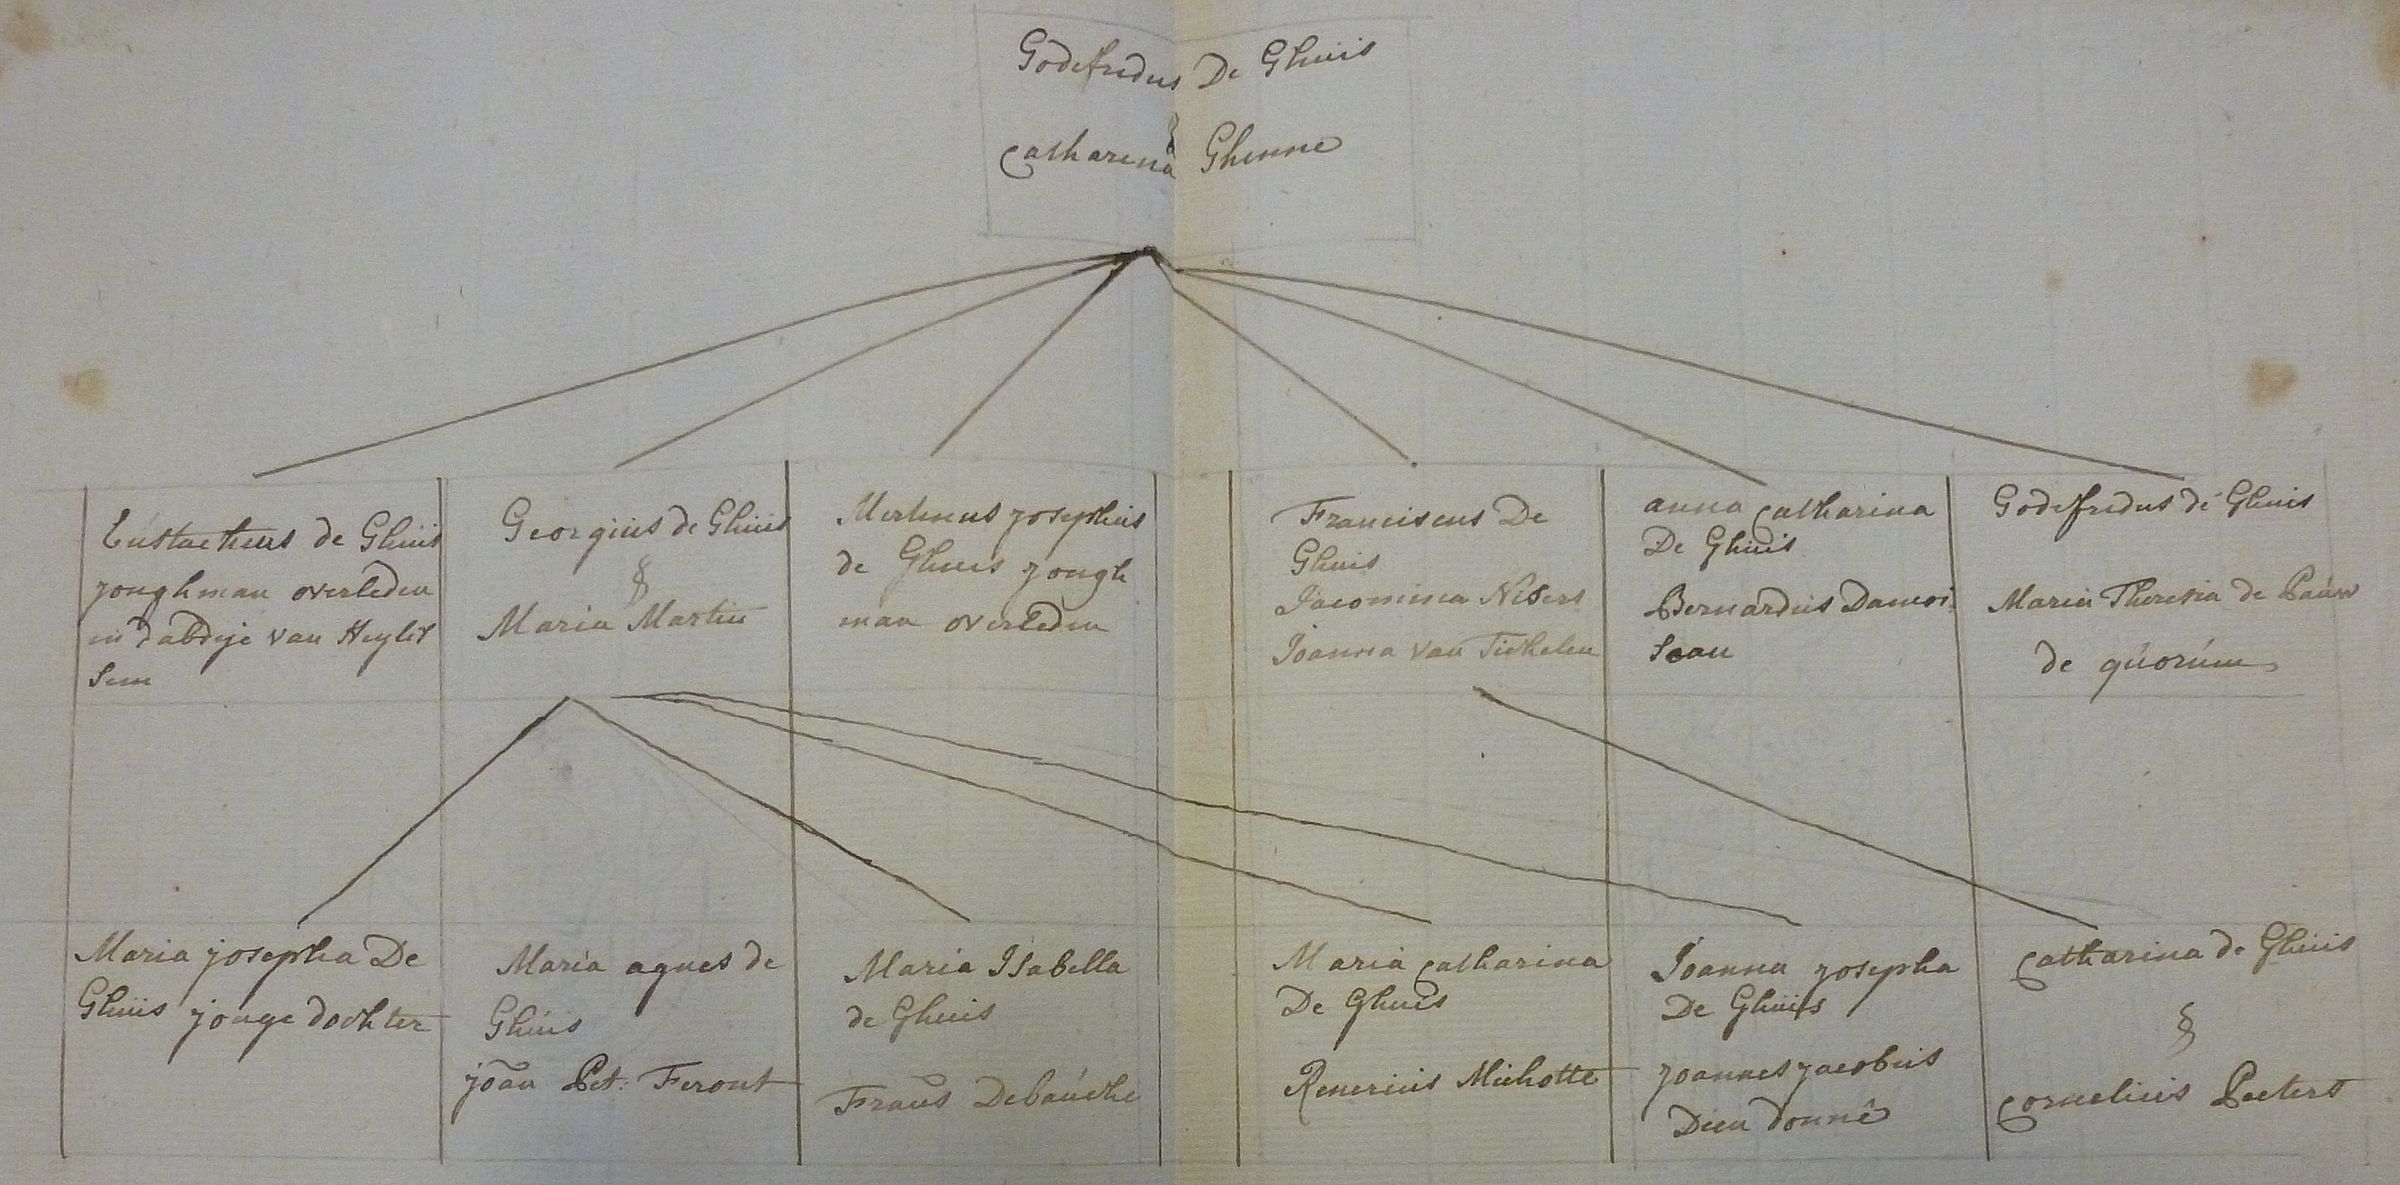 Godefredus De Ghuis
§
catharina Ghenne
Eustachius de Ghuis
jonghman overleden
in d'abdije van Heylis
sem
Georgius de Ghuis
§
Maria Martin
Martinus josephus
de Ghuis jongh
man overleden
Franciscus De
Ghuis
Jacomina
Joanna van Tichelen
anna catharina
De Ghuis
Bernardus Damoi
seau
Godefredus de Ghuis
Maria Theresia de Pauw
de quorum
Maria josepha De
Ghuis jonge dochter
Maria agnes de
Ghuis
joan Pet: Feront
Maria Isabella
de Ghuis
Frans Debauche
Maria catharina
De Ghuis
Renerius Michotte
Joanna josepha
De Ghuis
joannes jacobus
Dieu donné
catharina de Ghuis
§
cornelius Peeters